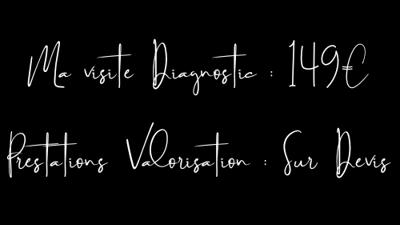 Ma visite Diagnostic : 149€
Prestations Valorisation : Sur Devis